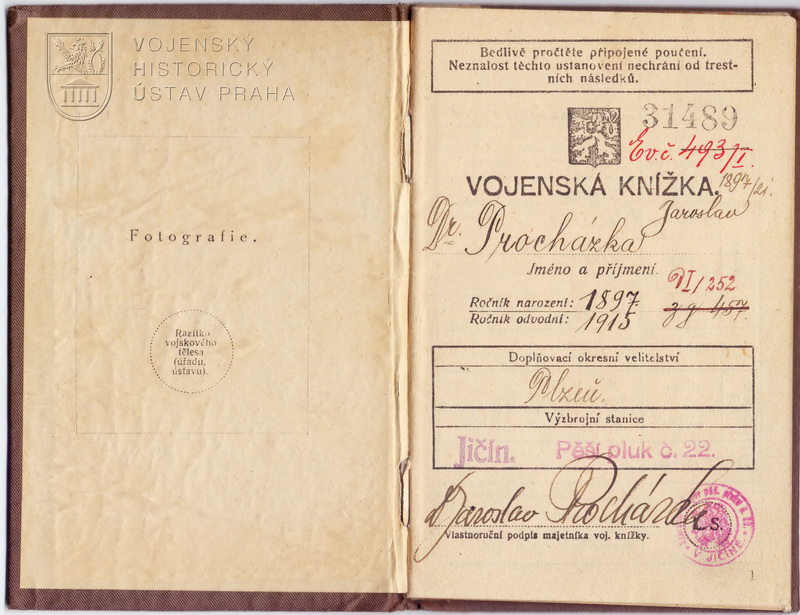 VOJENSKÝ
HISTORICKÝ
ÚSTAV PRAHA
Fotografie.
Razítko
vojskového
tělesa
(úřadu,
ústavu).
Bedlivě pročtěte připojené poučení.
Neznalost těchto ustanovení nechrání od trest-
ních následků.
31489
Ev. č. 493/I.
VOJENSKÁ KNÍŽKA.
Jaroslav
Dr. Procházka
Jméno a příjmení.
VI/252
Ročník narození: 1897.
Ročník odvodní: 1915
Doplňovací okresní velitelství
Plzeň.
Výzbrojní stanice
Jičín. Pěší pluk č. 22.
Dr Jaroslav Procházka
L. S.
V JIČÍNĚ
Vlastnoruční podpis majetníka voj. knížky.